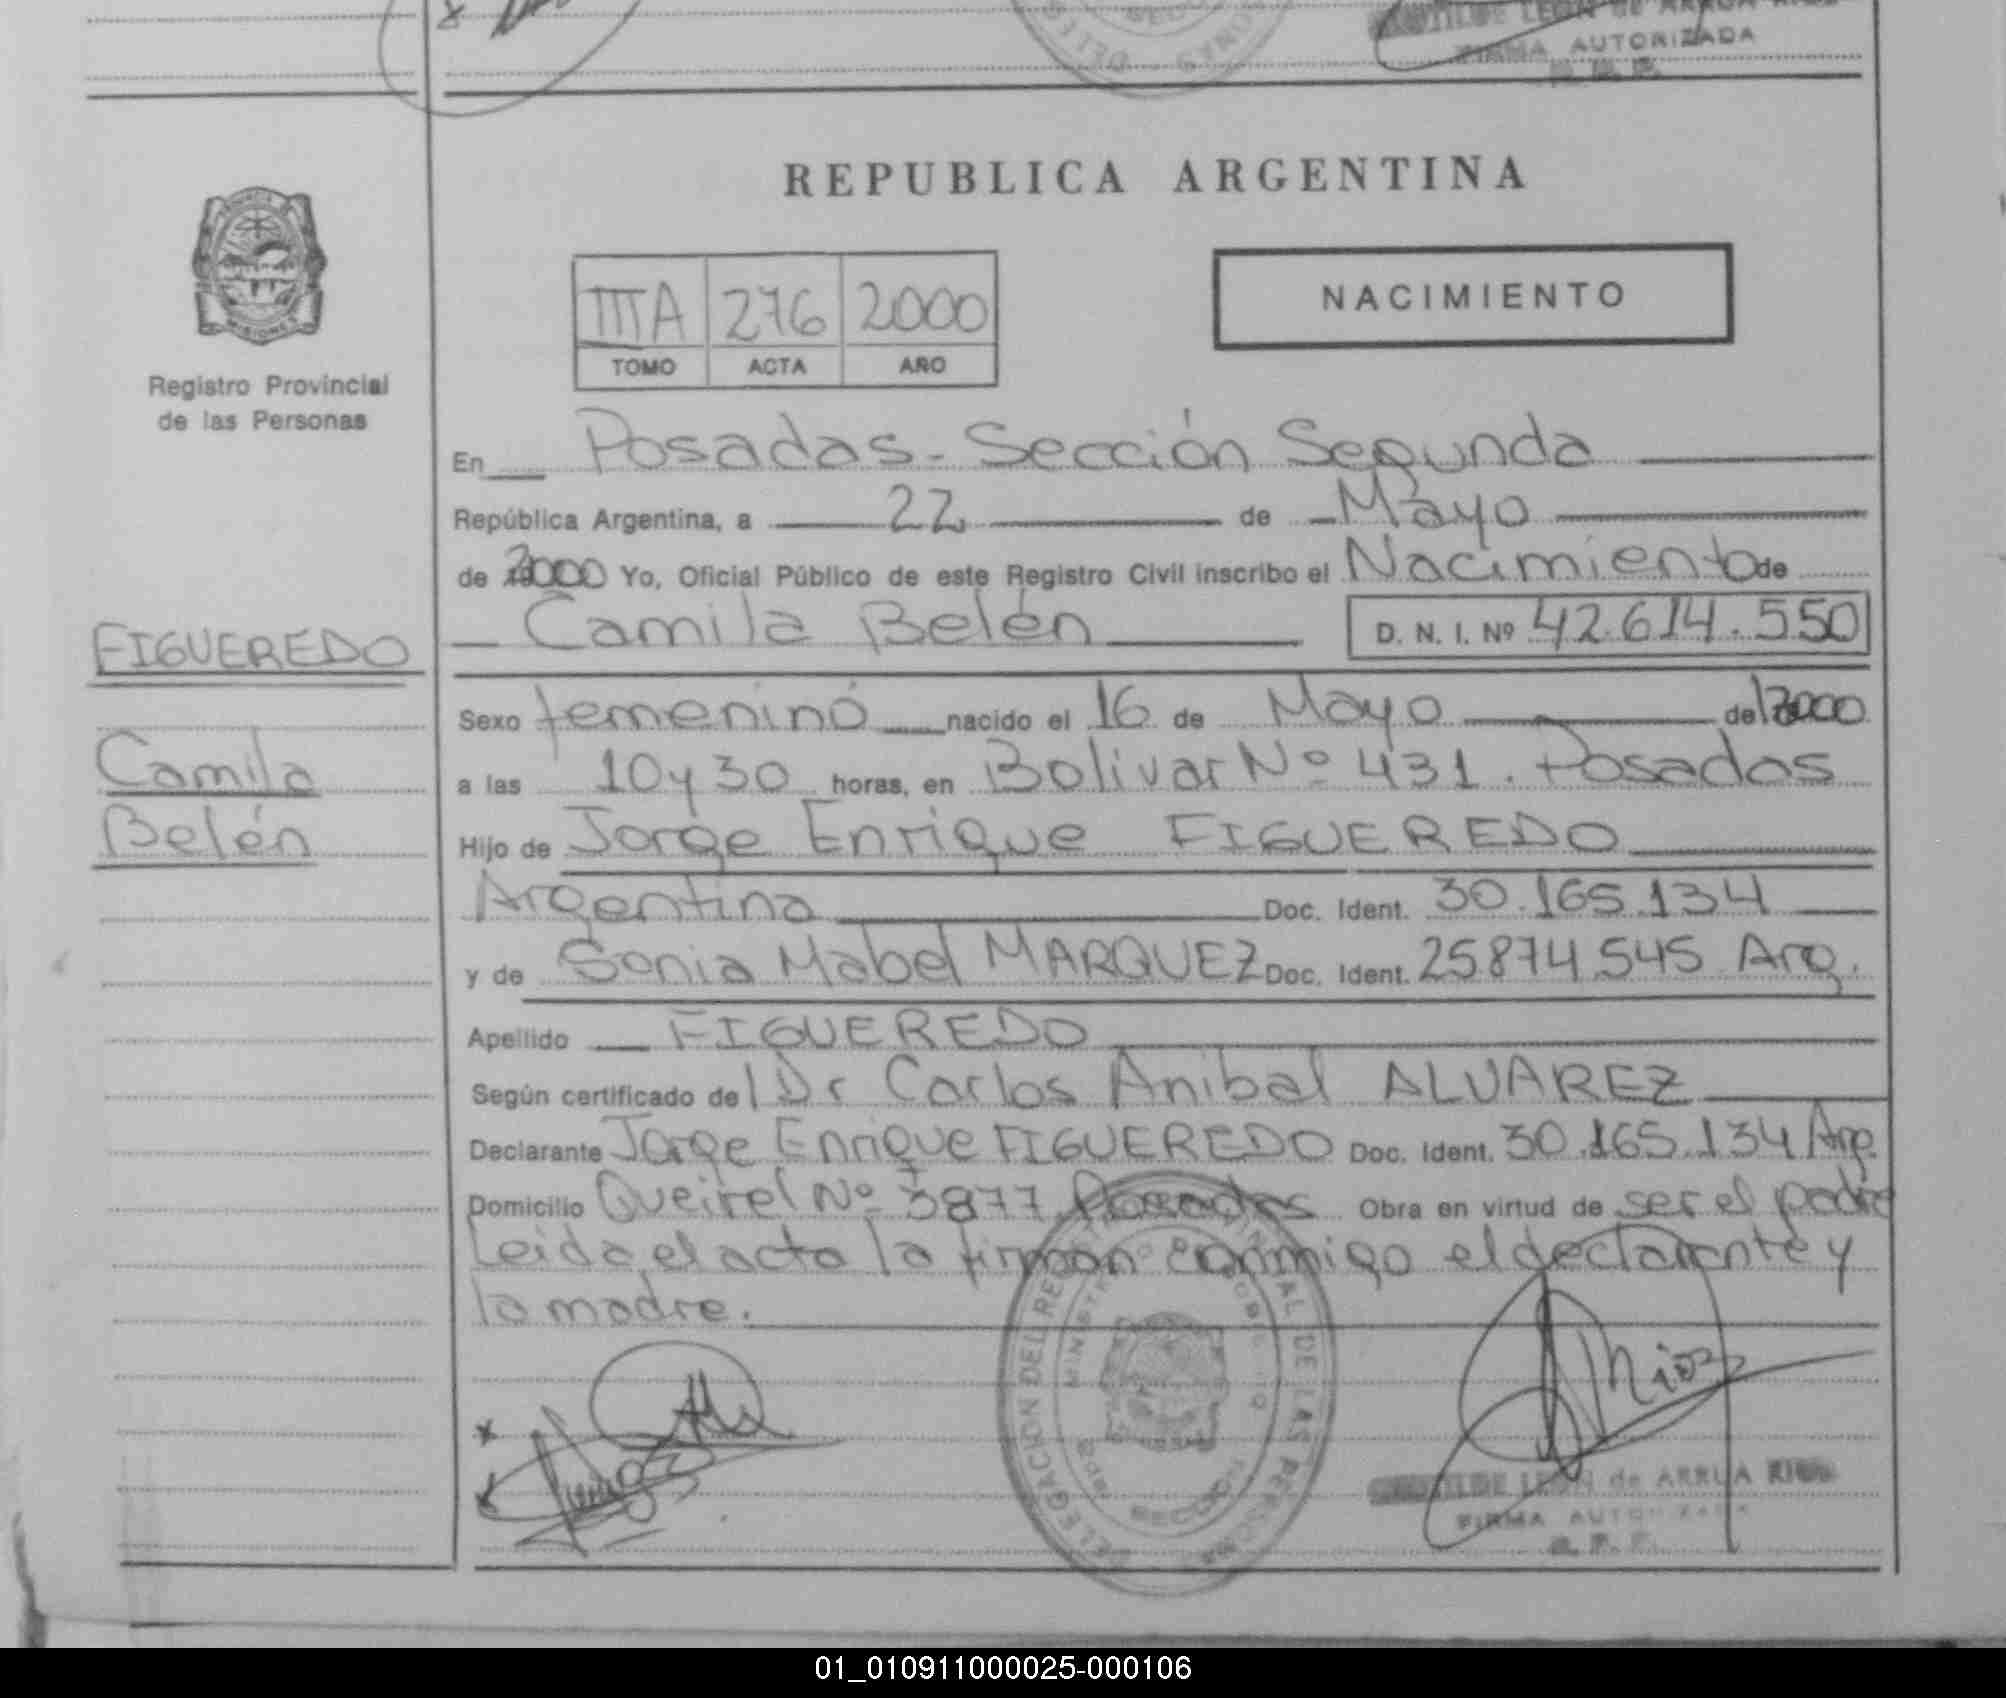 FIRMA AUTORIZADA
REPUBLICA ARGENTINA
MISIONES
Registro Provincial
de las Personas
NACIMIENTO
IIIA 276 2000
TOMO ACTA AÑO
En Posadas - Sección Segunda
República Argentina, a 22 de Mayo
de 2000 Yo, Oficial Público de este Registro Civil inscribo el Nacimiento de
Camila Belén D. N. I. Nº 42.614.550
FIGUEREDO
Camila
Belén
Sexo femenino nacido el 16 de Mayo de 2000
a las 10 y 30 horas, en Bolivar Nº 431. Posadas
Hijo de Jorge Enrique FIGUEREDO
Argentina Doc. Ident. 30.165.134
y de Sonia Mabel MARQUEZ Doc. Ident. 25874.545 Arg.
Apellido FIGUEREDO
Según certificado del Dr Carlos Anibal ALVAREZ
Declarante Jorge Enrique FIGUEREDO Doc. Ident. 30.165.134 Arg.
Domicilio Queirel Nº 3877 Posadas Obra en virtud de ser el padre
Leida el acta la firman conmigo el declarante y
la madre.
DELEGACION DEL REGISTRO PROVINCIAL DE LAS PERSONAS
LEON de ARRUA RIOS
FIRMA AUTORIZADA
01_010911000025-000106